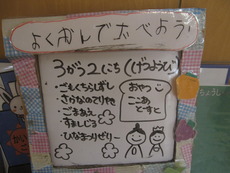 よくかんでたべよう
3がつ2にち(げつようび)
・ごもくちらしずし
・さかなのてりやき
・ごまあえ
・すましじる
・ひなまつりゼリー
おやつ
ここあ
とーすと